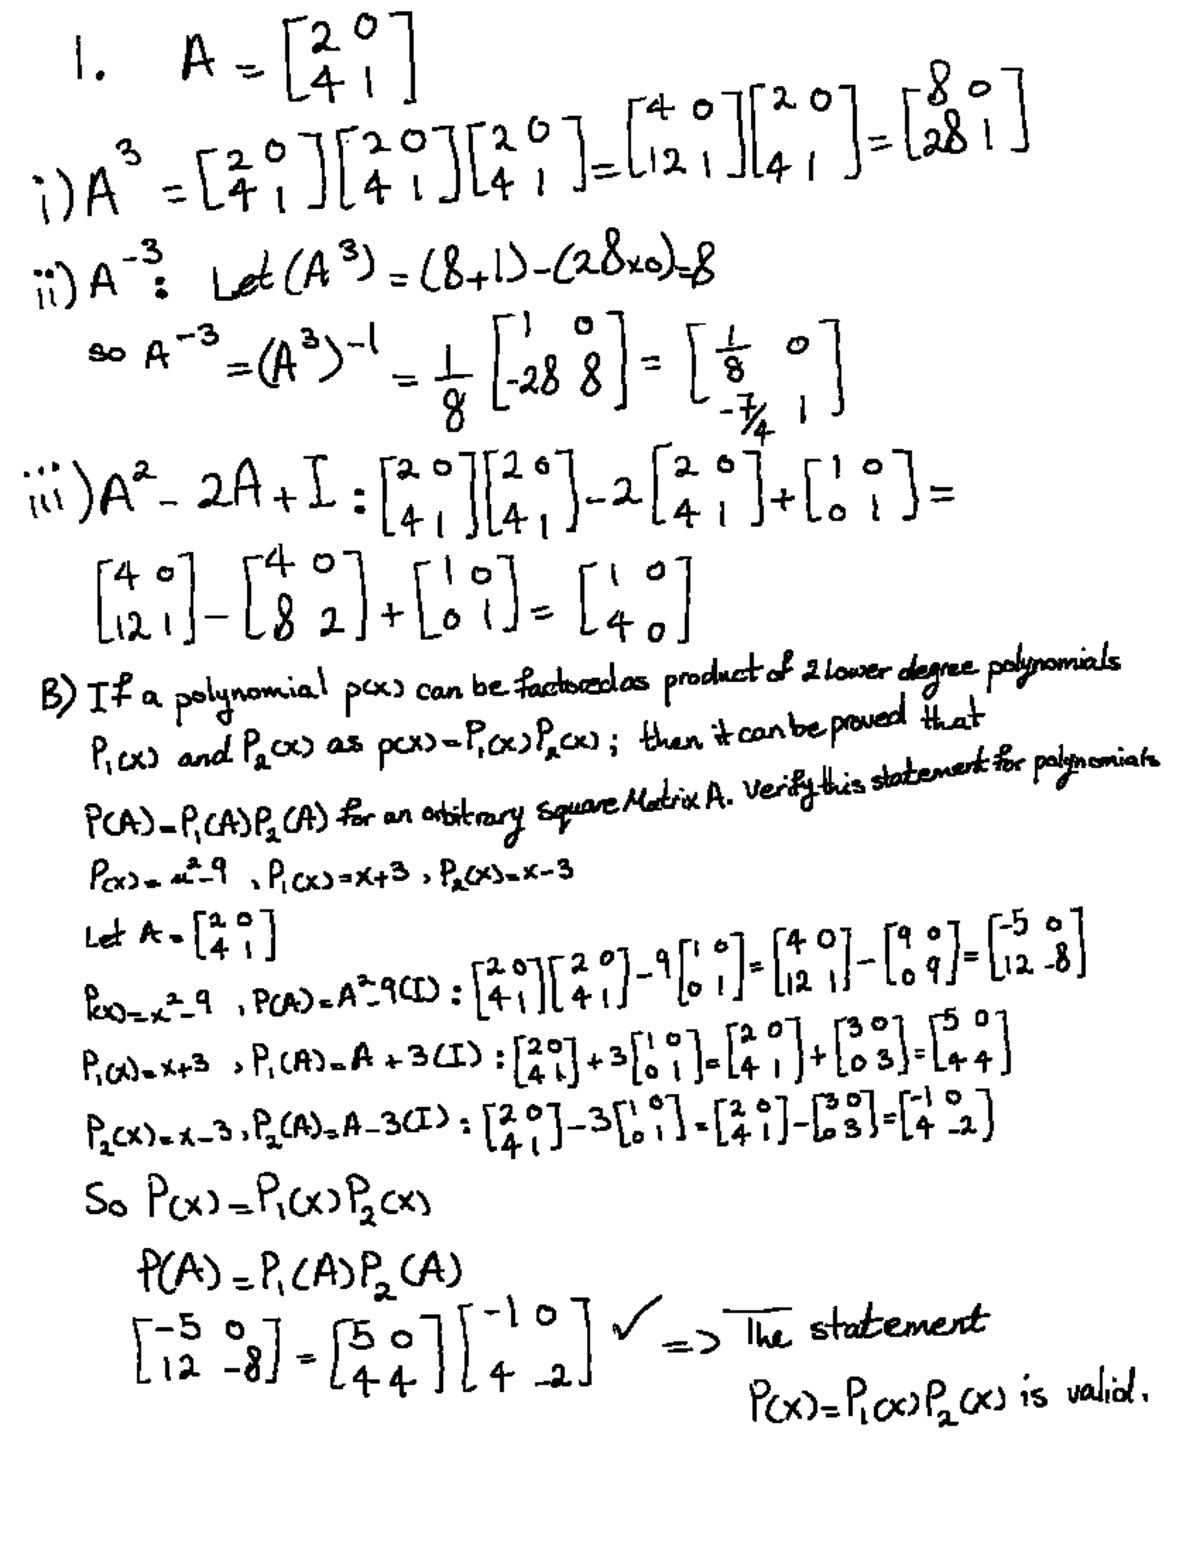 1. A = [2 0; 4 1]
i) A³ = [2 0; 4 1][2 0; 4 1][2 0; 4 1] = [4 0; 12 1][2 0; 4 1] = [8 0; 28 1]
ii) A⁻³: Let (A³) = (8+1)-(28x0)=8
so A⁻³ = (A³)⁻¹ = 1/8 [1 0; -28 8] = [1/8 0; -7/4 1]
iii) A² - 2A + I : [2 0; 4 1][2 0; 4 1] - 2[2 0; 4 1] + [1 0; 0 1] =
[4 0; 12 1] - [4 0; 8 2] + [1 0; 0 1] = [1 0; 4 0]
B) If a polynomial p(x) can be factored as product of 2 lower degree polynomials
P₁(x) and P₂(x) as p(x) = P₁(x)P₂(x); then it can be proved that
P(A) = P₁(A)P₂(A) for an arbitrary square Matrix A. Verify this statement for polynomials
P(x) = x²-9, P₁(x) = x+3, P₂(x) = x-3
Let A = [2 0; 4 1]
P(x) = x²-9, P(A) = A²-9(I) : [2 0; 4 1][2 0; 4 1] - 9[1 0; 0 1] = [4 0; 12 1] - [9 0; 0 9] = [-5 0; 12 -8]
P₁(x) = x+3, P₁(A) = A + 3(I) : [2 0; 4 1] + 3[1 0; 0 1] = [2 0; 4 1] + [3 0; 0 3] = [5 0; 4 4]
P₂(x) = x-3, P₂(A) = A-3(I) : [2 0; 4 1] - 3[1 0; 0 1] = [2 0; 4 1] - [3 0; 0 3] = [-1 0; 4 -2]
So P(x) = P₁(x)P₂(x)
P(A) = P₁(A)P₂(A)
[-5 0; 12 -8] = [5 0; 4 4][-1 0; 4 -2] ✓ => The statement
P(x) = P₁(x)P₂(x) is valid.